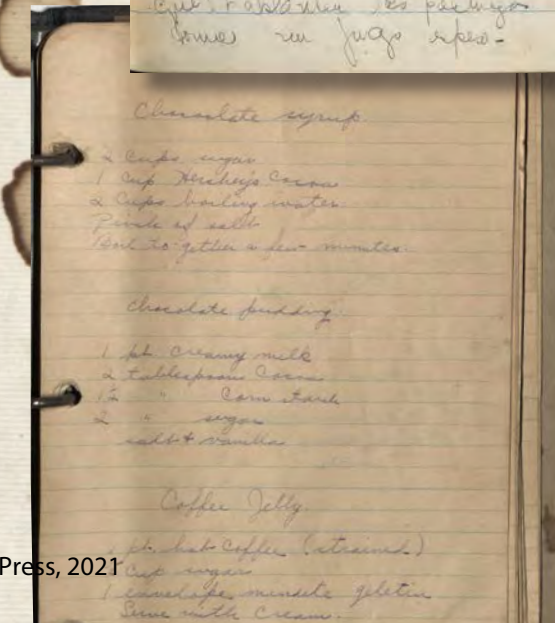 Chocolate syrup
2 cups sugar
1 cup Hershey's Cocoa
2 cups boiling water
Pinch of salt
Boil to-gether a few minutes.
Chocolate pudding
1 pt creamy milk
2 tablespoons Cocoa
1½ " Corn starch
2 " sugar
salt & vanilla
Coffee Jelly.
pt. hot coffee (strained)
Press, 2021
cup sugar
1 envelope minute geletin
Serve with Cream.